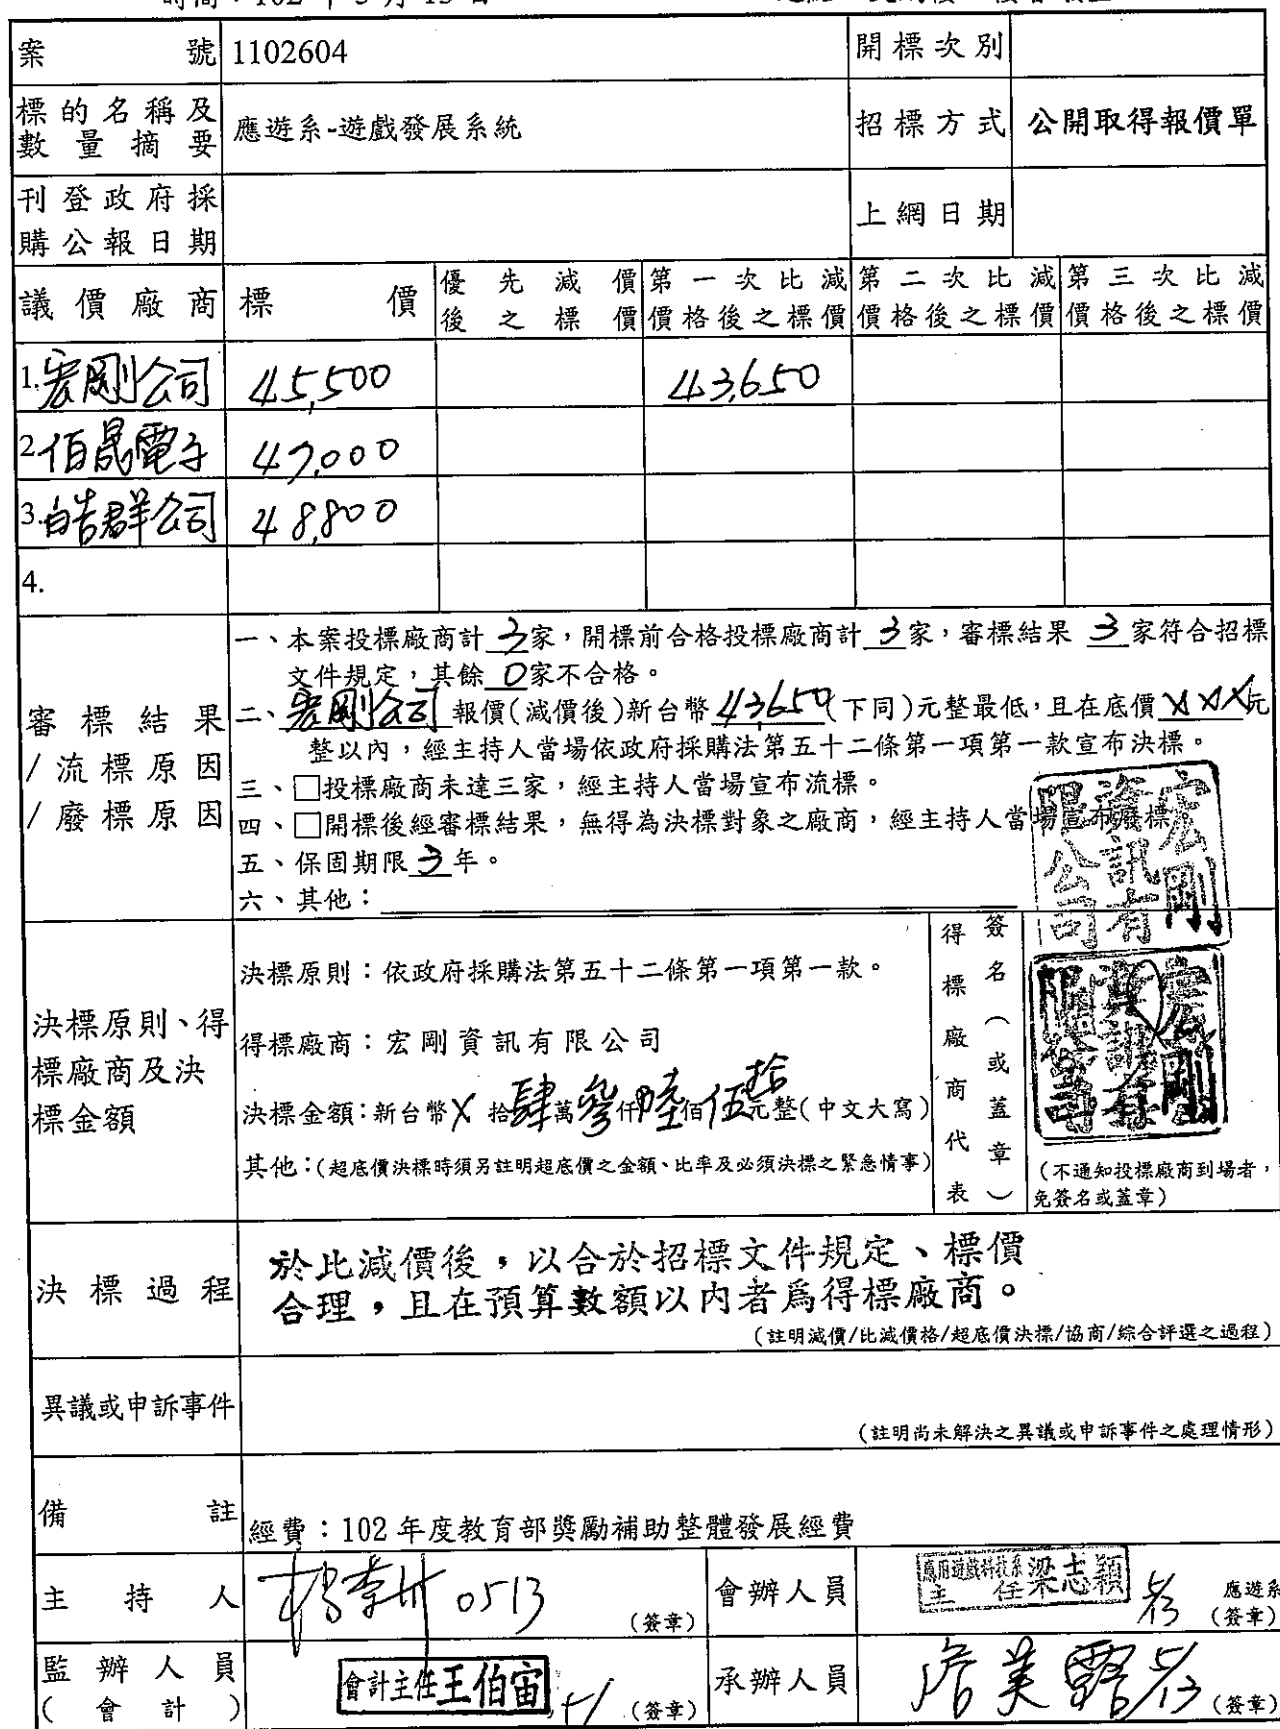 案號 1102604 開標次別
標的名稱及數量摘要 應遊系-遊戲發展系統 招標方式 公開取得報價單
刊登政府採購公報日期 上網日期
議價廠商 標價 優先減價後之標價 第一次比減價格後之標價 第二次比減價格後之標價 第三次比減價格後之標價
1.宏剛公司 45,500 43,650
2.佰晟電子 47,000
3.皓群公司 48,800
4.
審標結果/流標原因/廢標原因
一、本案投標廠商計 3 家，開標前合格投標廠商計 3 家，審標結果 3 家符合招標
文件規定，其餘 0 家不合格。
二、宏剛公司 報價(減價後)新台幣 43,650 (下同)元整最低，且在底價 XXX 元
整以內，經主持人當場依政府採購法第五十二條第一項第一款宣布決標。
三、□投標廠商未達三家，經主持人當場宣布流標。
四、□開標後經審標結果，無得為決標對象之廠商，經主持人當場宣布廢標
五、保固期限 3 年。
六、其他：
宏剛資訊有限公司
決標原則、得標廠商及決標金額
決標原則：依政府採購法第五十二條第一項第一款。
得標廠商：宏剛資訊有限公司
決標金額：新台幣X拾肆萬參仟陸佰伍拾元整(中文大寫)
其他：(超底價決標時須另註明超底價之金額、比率及必須決標之緊急情事)
得標廠商代表簽名(或蓋章)
宏剛資訊有限公司
(不通知投標廠商到場者，
免簽名或蓋章)
決標過程
於比減價後，以合於招標文件規定、標價
合理，且在預算數額以內者為得標廠商。
(註明減價/比減價格/超底價決標/協商/綜合評選之過程)
異議或申訴事件
(註明尚未解決之異議或申訴事件之處理情形)
備註 經費：102 年度教育部獎勵補助整體發展經費
主持人 0513 (簽章) 會辦人員 應用遊戲科技系主任梁志穎 5/13 應遊系(簽章)
監辦人員(會計) 會計主任王伯宙 (簽章) 承辦人員 詹美露 5/13 (簽章)